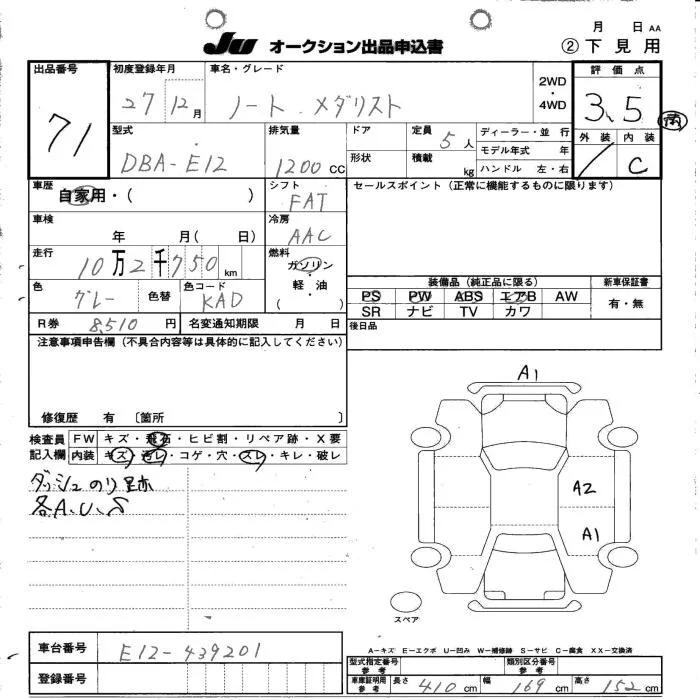 月 日 AA
JU オークション出品申込書 ② 下見用
出品番号 71
初度登録年月 27 12月
車名・グレード ノート メダリスト
2WD・4WD
評価点 3.5
外装 内装 C
型式 DBA-E12
排気量 1200 CC
ドア
形状
定員 5人
積載 kg
ディーラー・並行
モデル年式 年
ハンドル 左・右
車歴 自家用・( )
シフト FAT
車検 年 月( 日)
冷房 AAC
走行 10万2千750km
燃料 ガソリン・軽油・( )
色 グレー 色替
色コード KAD
R券 8,510円 名変通知期限 月 日
セールスポイント(正常に機能するものに限ります)
装備品(純正品に限る)
PS PW ABS エアB AW
SR ナビ TV カワ
新車保証書
有・無
後日品
注意事項申告欄(不具合内容等は具体的に記入してください)
修復歴 有 〔箇所 〕
検査員記入欄
FW キズ・飛石・ヒビ割・リペア跡・X要
内装 キズ・汚レ・コゲ・穴・スレ・キレ・破レ
ダッシュのり跡
各A.U.S
A1
A2
A1
スペア
A-キズ E-エクボ U-凹み W-補修跡 S-サビ C-腐食 XX-交換済
車台番号 E12-439201
登録番号
型式指定番号 参考
類別区分番号 参考
車庫証明用 参考 長さ 410cm 幅 169cm 高さ 152cm